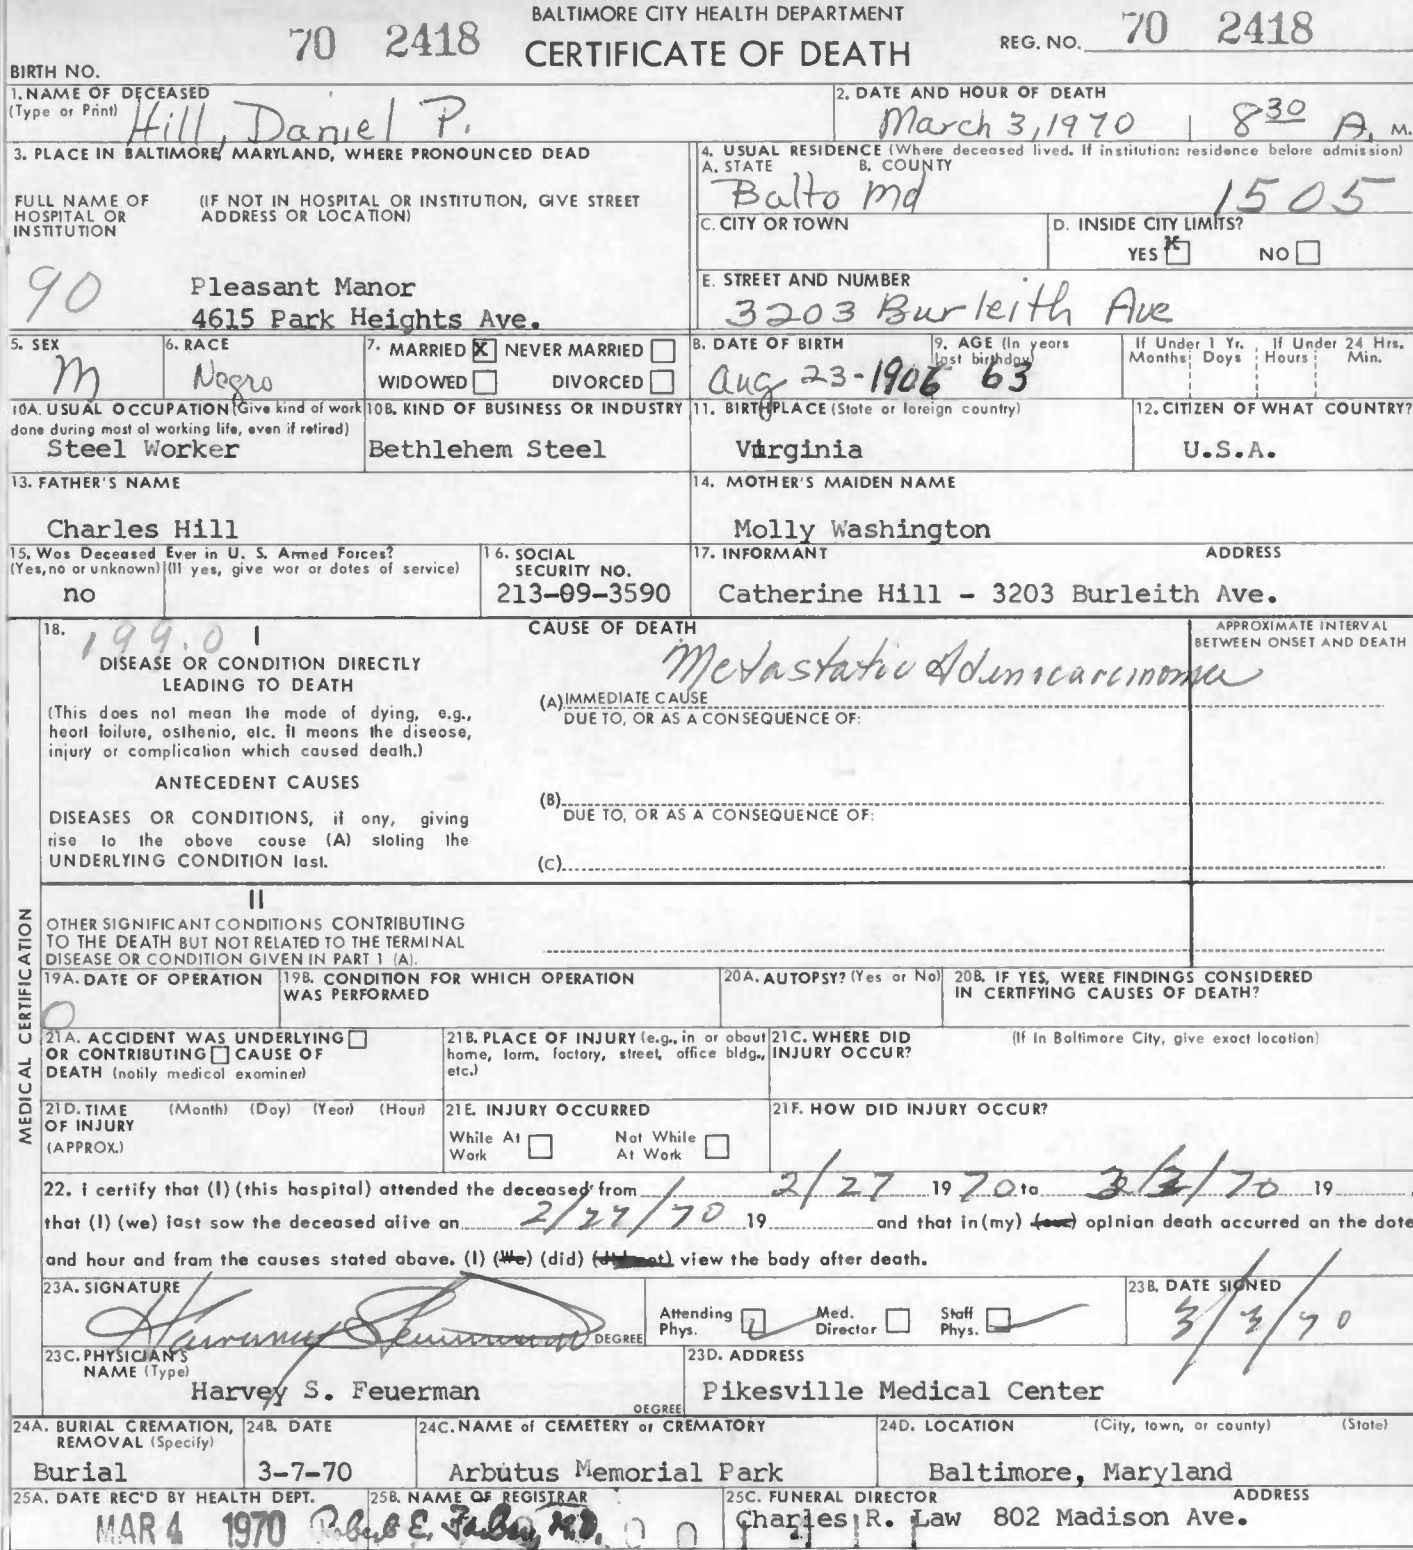 BALTIMORE CITY HEALTH DEPARTMENT
70 2418 CERTIFICATE OF DEATH REG. NO. 70 2418
BIRTH NO.
1. NAME OF DECEASED
(Type or Print) Hill, Daniel P.
2. DATE AND HOUR OF DEATH
March 3, 1970 8 30 A. M.
3. PLACE IN BALTIMORE, MARYLAND, WHERE PRONOUNCED DEAD
FULL NAME OF HOSPITAL OR INSTITUTION
(IF NOT IN HOSPITAL OR INSTITUTION, GIVE STREET ADDRESS OR LOCATION)
90
Pleasant Manor
4615 Park Heights Ave.
4. USUAL RESIDENCE (Where deceased lived. If institution: residence before admission)
A. STATE B. COUNTY
Balto Md 1505
C. CITY OR TOWN
D. INSIDE CITY LIMITS?
YES X NO
E. STREET AND NUMBER
3203 Burleith Ave
5. SEX
M
6. RACE
Negro
7. MARRIED X NEVER MARRIED
WIDOWED DIVORCED
8. DATE OF BIRTH
Aug 23-1906
9. AGE (In years last birthday)
63
If Under 1 Yr. If Under 24 Hrs.
Months Days Hours Min.
10A. USUAL OCCUPATION (Give kind of work done during most of working life, even if retired)
Steel Worker
10B. KIND OF BUSINESS OR INDUSTRY
Bethlehem Steel
11. BIRTHPLACE (State or foreign country)
Virginia
12. CITIZEN OF WHAT COUNTRY?
U.S.A.
13. FATHER'S NAME
Charles Hill
14. MOTHER'S MAIDEN NAME
Molly Washington
15. Was Deceased Ever in U. S. Armed Forces?
(Yes, no or unknown) (If yes, give war or dates of service)
no
16. SOCIAL SECURITY NO.
213-09-3590
17. INFORMANT ADDRESS
Catherine Hill - 3203 Burleith Ave.
MEDICAL CERTIFICATION
18. 199.0 I
DISEASE OR CONDITION DIRECTLY
LEADING TO DEATH
(This does not mean the mode of dying, e.g.,
heart failure, asthenia, etc. It means the disease,
injury or complication which caused death.)
ANTECEDENT CAUSES
DISEASES OR CONDITIONS, if any, giving
rise to the above cause (A) stating the
UNDERLYING CONDITION last.
CAUSE OF DEATH
APPROXIMATE INTERVAL
BETWEEN ONSET AND DEATH
Metastatic Adenocarcinoma
(A) IMMEDIATE CAUSE
DUE TO, OR AS A CONSEQUENCE OF:
(B)
DUE TO, OR AS A CONSEQUENCE OF:
(C)
II
OTHER SIGNIFICANT CONDITIONS CONTRIBUTING
TO THE DEATH BUT NOT RELATED TO THE TERMINAL
DISEASE OR CONDITION GIVEN IN PART 1 (A).
19A. DATE OF OPERATION
0
19B. CONDITION FOR WHICH OPERATION WAS PERFORMED
20A. AUTOPSY? (Yes or No)
20B. IF YES, WERE FINDINGS CONSIDERED IN CERTIFYING CAUSES OF DEATH?
21A. ACCIDENT WAS UNDERLYING
OR CONTRIBUTING CAUSE OF
DEATH (notify medical examiner)
21B. PLACE OF INJURY (e.g., in or about home, farm, factory, street, office bldg., etc.)
21C. WHERE DID INJURY OCCUR?
(If in Baltimore City, give exact location)
21D. TIME OF INJURY (APPROX.)
(Month) (Day) (Year) (Hour)
21E. INJURY OCCURRED
While At Work Not While At Work
21F. HOW DID INJURY OCCUR?
22. I certify that (I) (this hospital) attended the deceased from 2/27 1970 to 3/3/70 19
that (I) (we) last saw the deceased alive on 2/27/70 19 and that in (my) (our) opinion death occurred on the date
and hour and from the causes stated above. (I) (We) (did) (did not) view the body after death.
23A. SIGNATURE
DEGREE
Attending Phys. Med. Director Staff Phys.
23B. DATE SIGNED
3/3/70
23C. PHYSICIAN'S NAME (Type)
Harvey S. Feuerman
DEGREE
23D. ADDRESS
Pikesville Medical Center
24A. BURIAL CREMATION, REMOVAL (Specify)
Burial
24B. DATE
3-7-70
24C. NAME of CEMETERY or CREMATORY
Arbutus Memorial Park
24D. LOCATION (City, town, or county) (State)
Baltimore, Maryland
25A. DATE REC'D BY HEALTH DEPT.
MAR 4 1970
25B. NAME OF REGISTRAR
Robert E. Farber, M.D.
25C. FUNERAL DIRECTOR ADDRESS
Charles R. Law 802 Madison Ave.